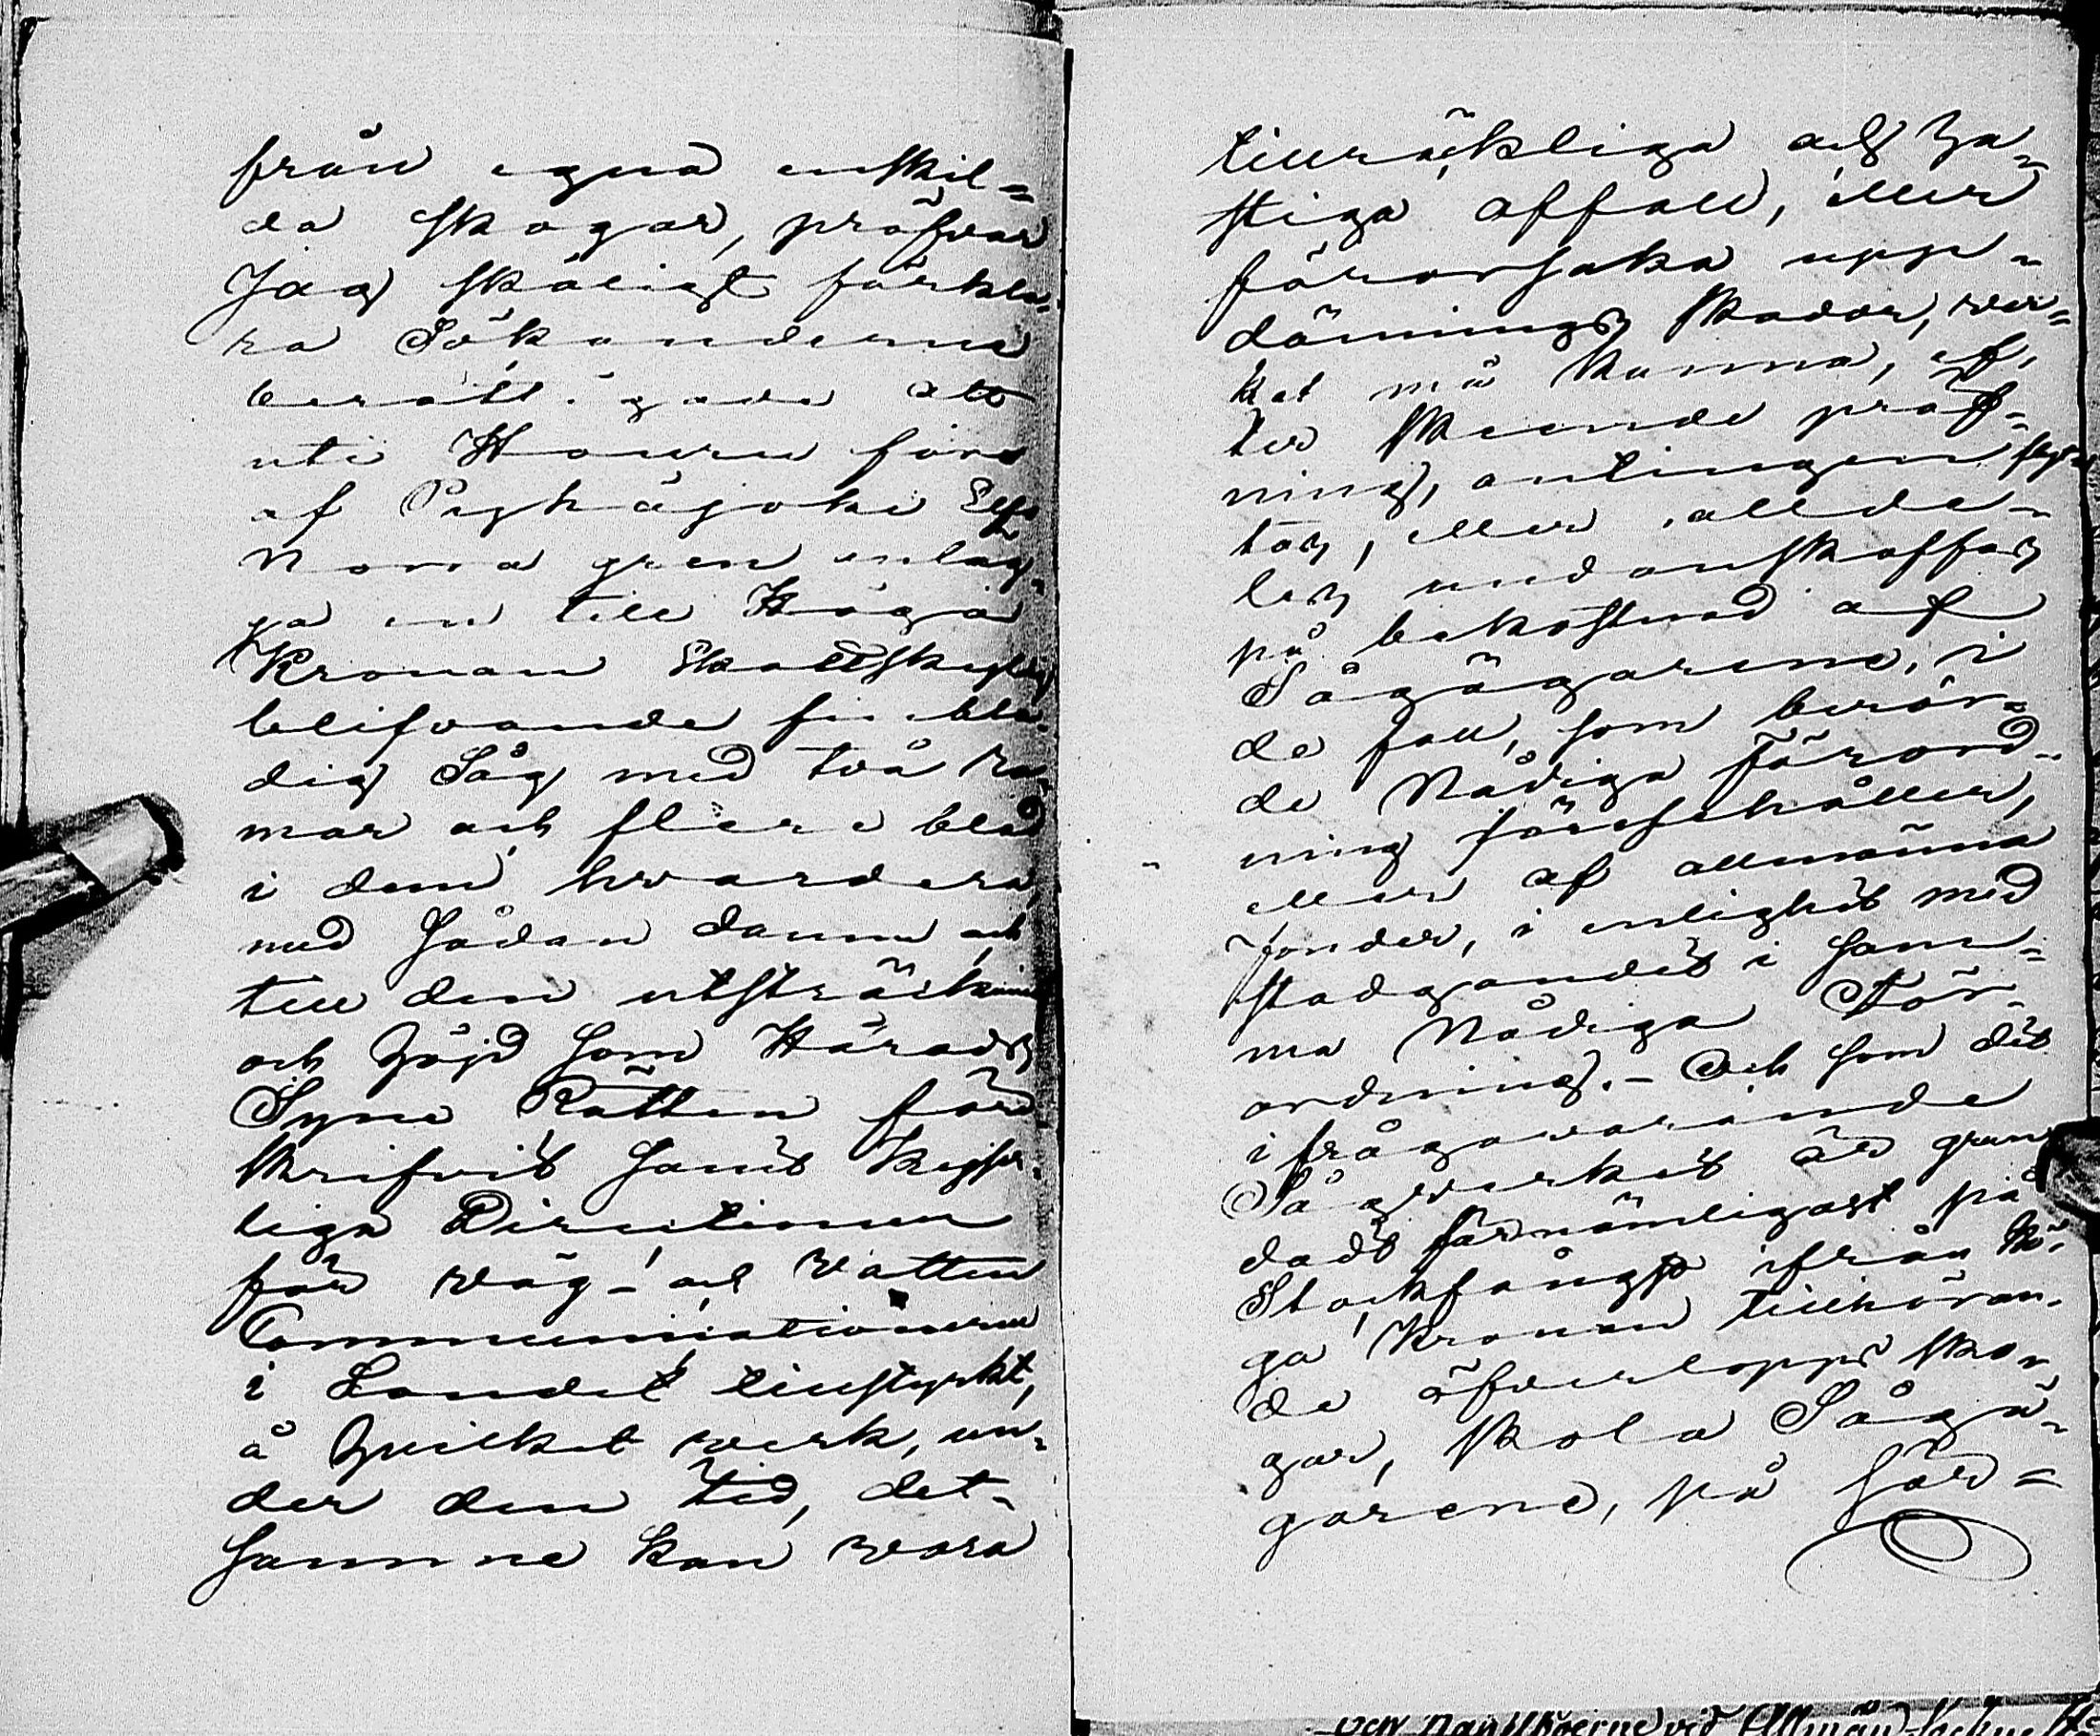 från egna enskil=
da skogar, pröfvar
Jag skäligt förkla=
ra Sökanderne
berättigade att
uti fors
af Pyhäjoki Elfs
Norra gren anläg=
ga en till Höga
Kronan Skattskyldig
blifvande finbla=
dig Såg med två ra=
mar och flere blad
i dem hvardera,
med sådan damm och
till den utsträckning
och höjd som Härads
Syne Rätten före
skrifvit samt Kejser=
liga Directionen
för väg- och Vatten
Communicationerne
i Landet tillstyrkt,
å hvilket verk, un=
der den tid, det=
samma kan vara
tillräckliga och ha=
stiga affall, eller
förorsaka upp=
dämnings skador, ver=
ket må kunna, ef=
ter skeende pröf=
ning, antingen flyt=
tas, eller allde=
les undanskaffas
på bekostnad af
Sågägarene, i
de fall, som berör=
de Nådiga Förord=
ning föreskåller,
eller af allmänna
fonder, i enlighet med
stadgandet i sam=
ma Nådiga För=
ordning. – Och som det
ifrågavarande
Sågverket är grun=
dadt förnämligast på
Stockfångst ifrån Hö=
ga Kronan tillhöran=
de öfverlopps sko=
gar, skola Sågä=
garene, på för=
och vid Allmän